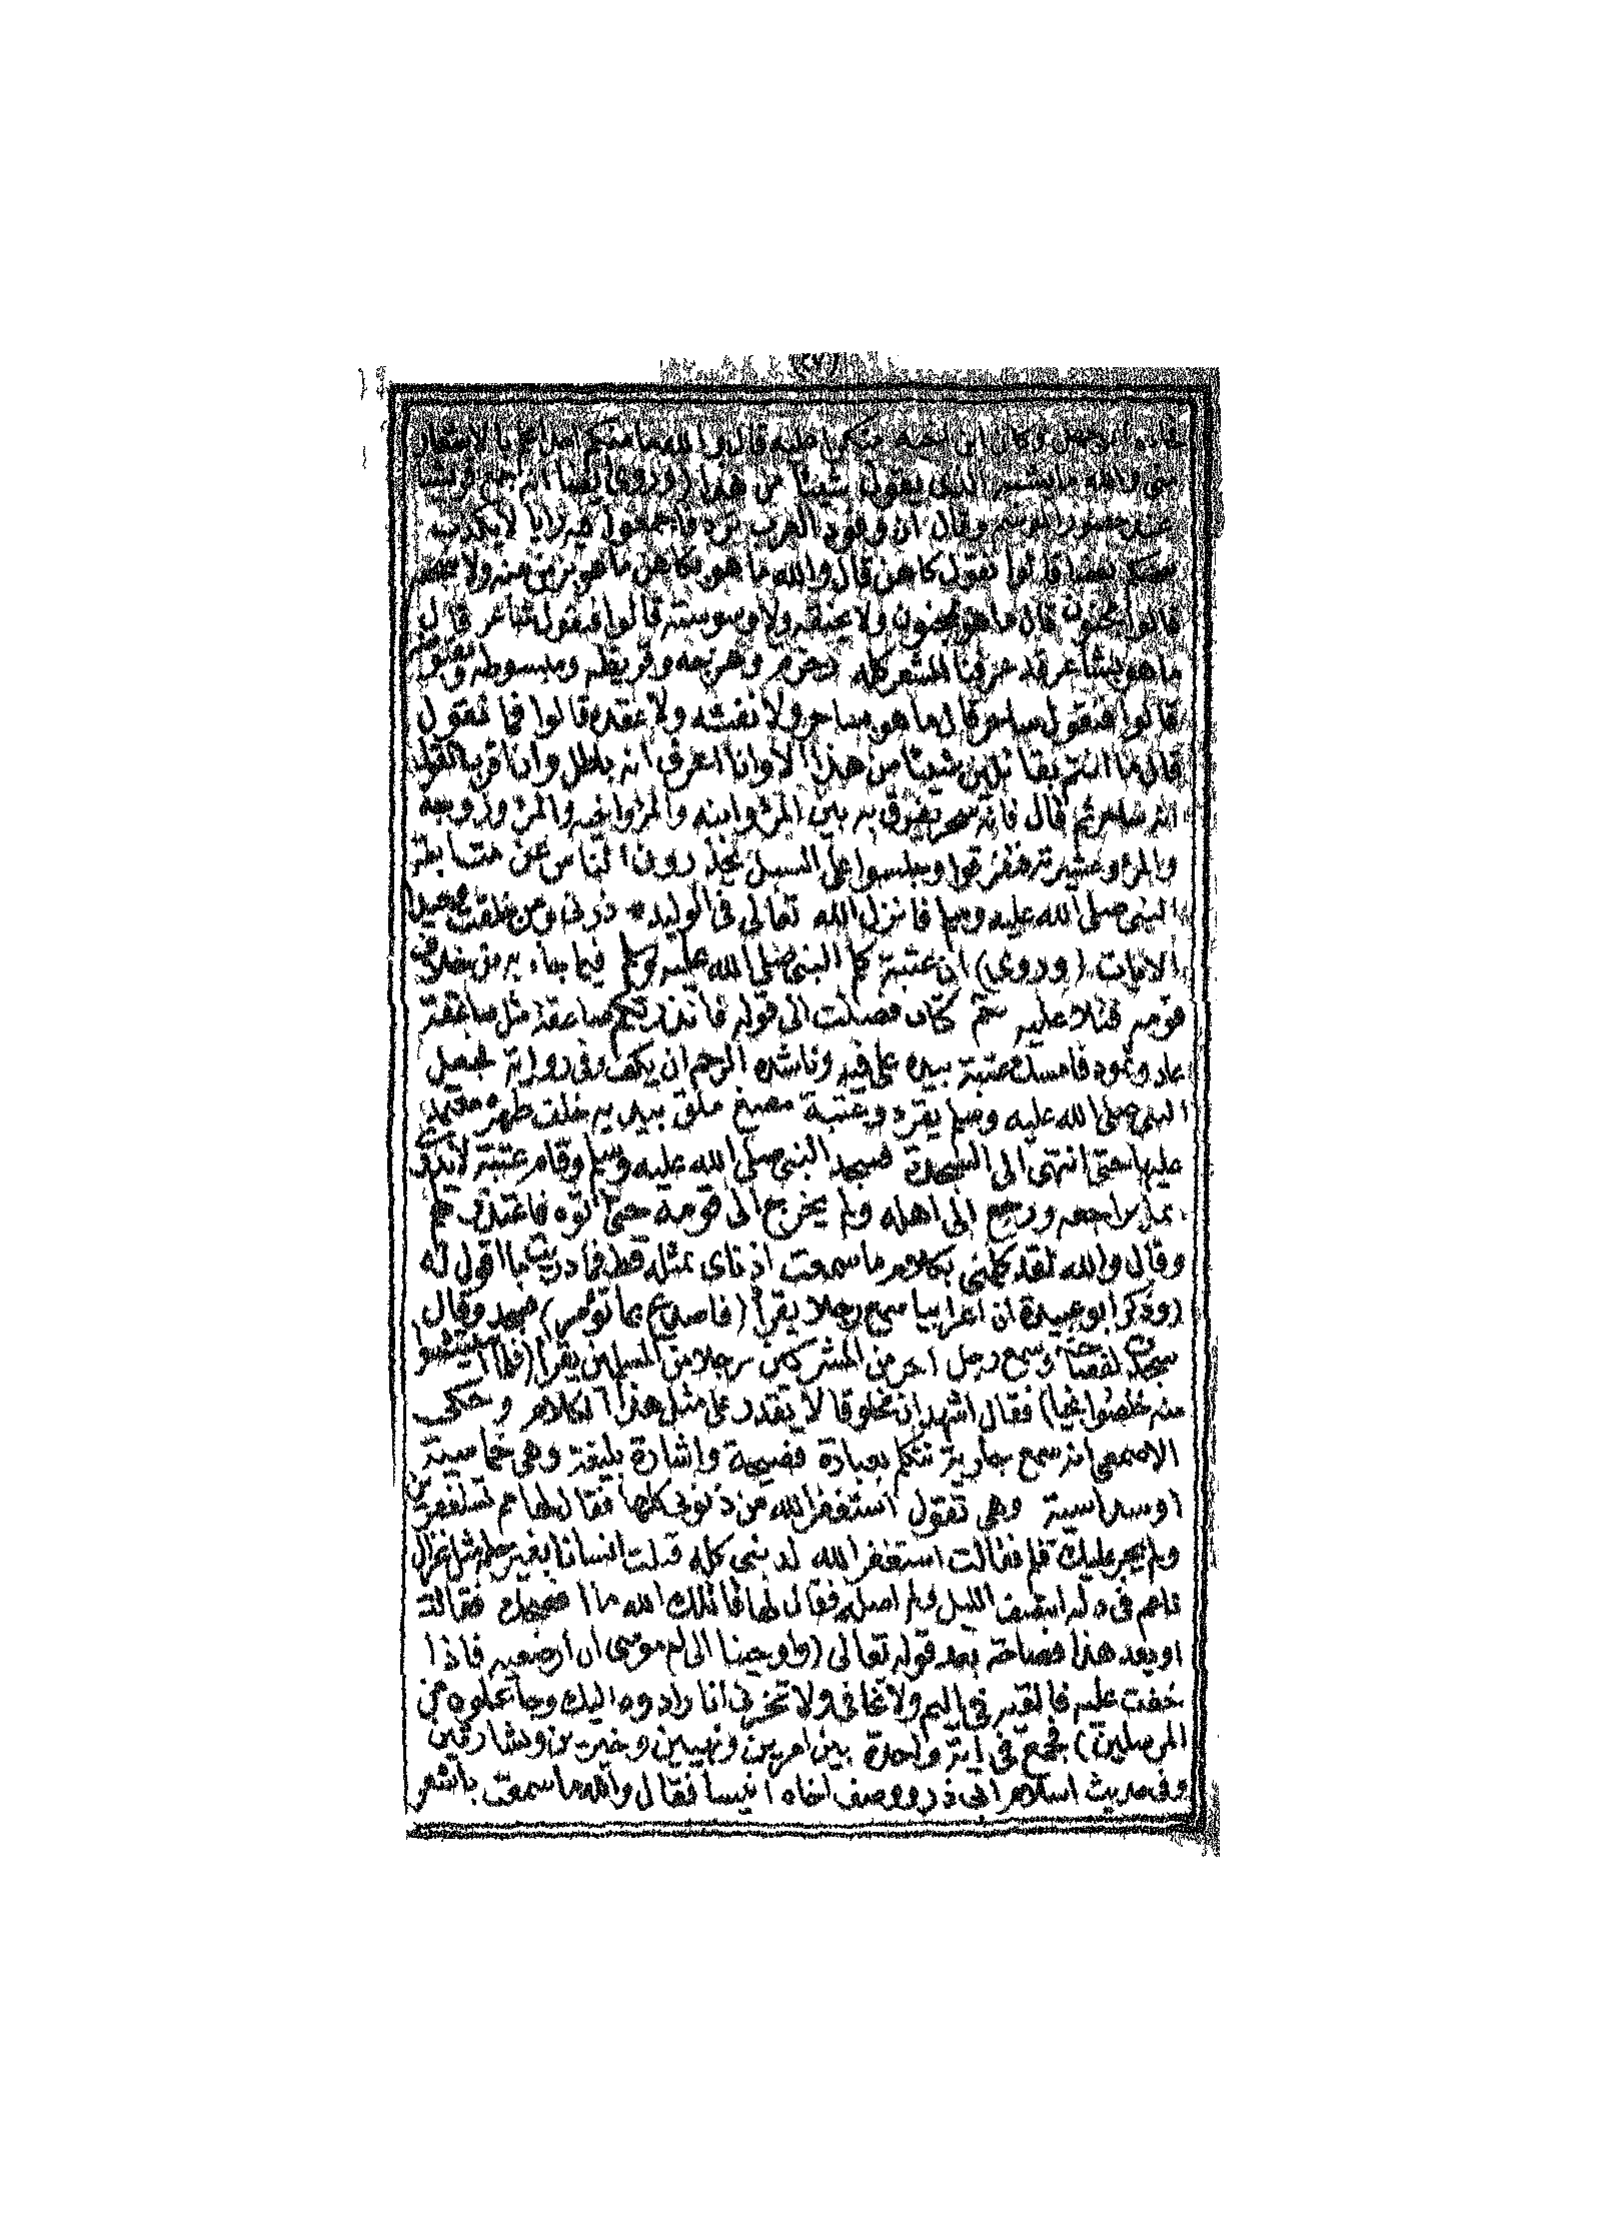 (٢٧)
جاءه ابو جهل وكان ابن اخيه منكرا عليه قال والله ما منكم احد اعلم بالاشعار
منى والله ما يشبه الذى يقول شيئا من هذا (وروى ايضا) انه جمع قريشا
عند حضور الموسم وقال ان وفود العرب ترد فاجمعوا فيه رأيا لا يكذب
بعضكم بعضا قالوا نقول كاهن قال والله ما هو بكاهن ما هو بزمزمته ولا سجعه
قالوا مجنون قال ما هو بمجنون ولا بخنقه ولا وسوسته قالوا فنقول شاعر قال
ما هو بشاعر قد عرفنا الشعر كله رجزه وهزجه وقريظه ومبسوطه ومقبوضه
قالوا فنقول ساحر قال ما هو بساحر ولا نفثه ولا عقده قالوا فما نقول
قال ما انتم بقائلين شيئا من هذا الا وانا اعرف انه باطل وان اقرب القول
انه ساحر ثم قال فانه سحر يفرق به بين المرء وابنه والمرء واخيه والمرء وزوجه
والمرء وعشيرته فتفرقوا وجلسوا على السبل يحذرون الناس عن متابعة
النبى صلى الله عليه وسلم فانزل الله تعالى فى الوليد * ذرنى ومن خلقت وحيدا
الايات (وروى) ان عتبة كلم النبى صلى الله عليه وسلم فيما جاء به من خلاف
قومه فتلا عليه حم كتاب فصلت الى قوله فانذرتكم صاعقة مثل صاعقة
عاد وثمود فامسك عتبة بيده على فيه وناشده الرحم ان يكف وفى رواية فجعل
النبى صلى الله عليه وسلم يقرء وعتبة مصغ ملق بيديه خلف ظهره معتمد
عليها حتى انتهى الى السجدة فسجد النبى صلى الله عليه وسلم وقام عتبة لا يدرى
بما يراجعه ورجع الى اهله ولم يخرج الى قومه حتى اتوه فاعتذر لهم
وقال والله لقد كلمنى بكلام ما سمعت اذناى بمثله قط فما دريت ما اقول له
(وذكر) ابو عبيدة ان اعرابيا سمع رجلا يقرأ (فاصدع بما تؤمر) فسجد وقال
سجدت لفصاحته وسمع رجل آخر من المشركين رجلا من المسلمين يقرأ (فلما استيئسوا
منه خلصوا نجيا) فقال اشهد ان مخلوقا لا يقدر على مثل هذا الكلام وحكى
الاصمعى انه سمع جارية تتكلم بعبارة فصيحة واشارة بليغة وهى خماسية
او سداسية وهى تقول استغفر الله من ذنوبى كلها فقال لها مم تستغفرين
ولم يجر عليك قلم فقالت استغفر الله لذنبى كله قتلت انسانا بغير حله مثل غزال
ناعم فى دله انتصف الليل ولم اصله فقال لها قاتلك الله ما افصحك فقالت
اويعد هذا فصاحة بعد قوله تعالى (واوحينا الى ام موسى ان ارضعيه فاذا
خفت عليه فالقيه فى اليم ولا تخافى ولا تحزنى انا رادوه اليك وجاعلوه من
المرسلين) فجمع فى آية واحدة بين امرين ونهيين وخبرين وبشارتين
وفى حديث اسلام ابى ذر ووصف اخاه انيسا فقال والله ما سمعت باشعر